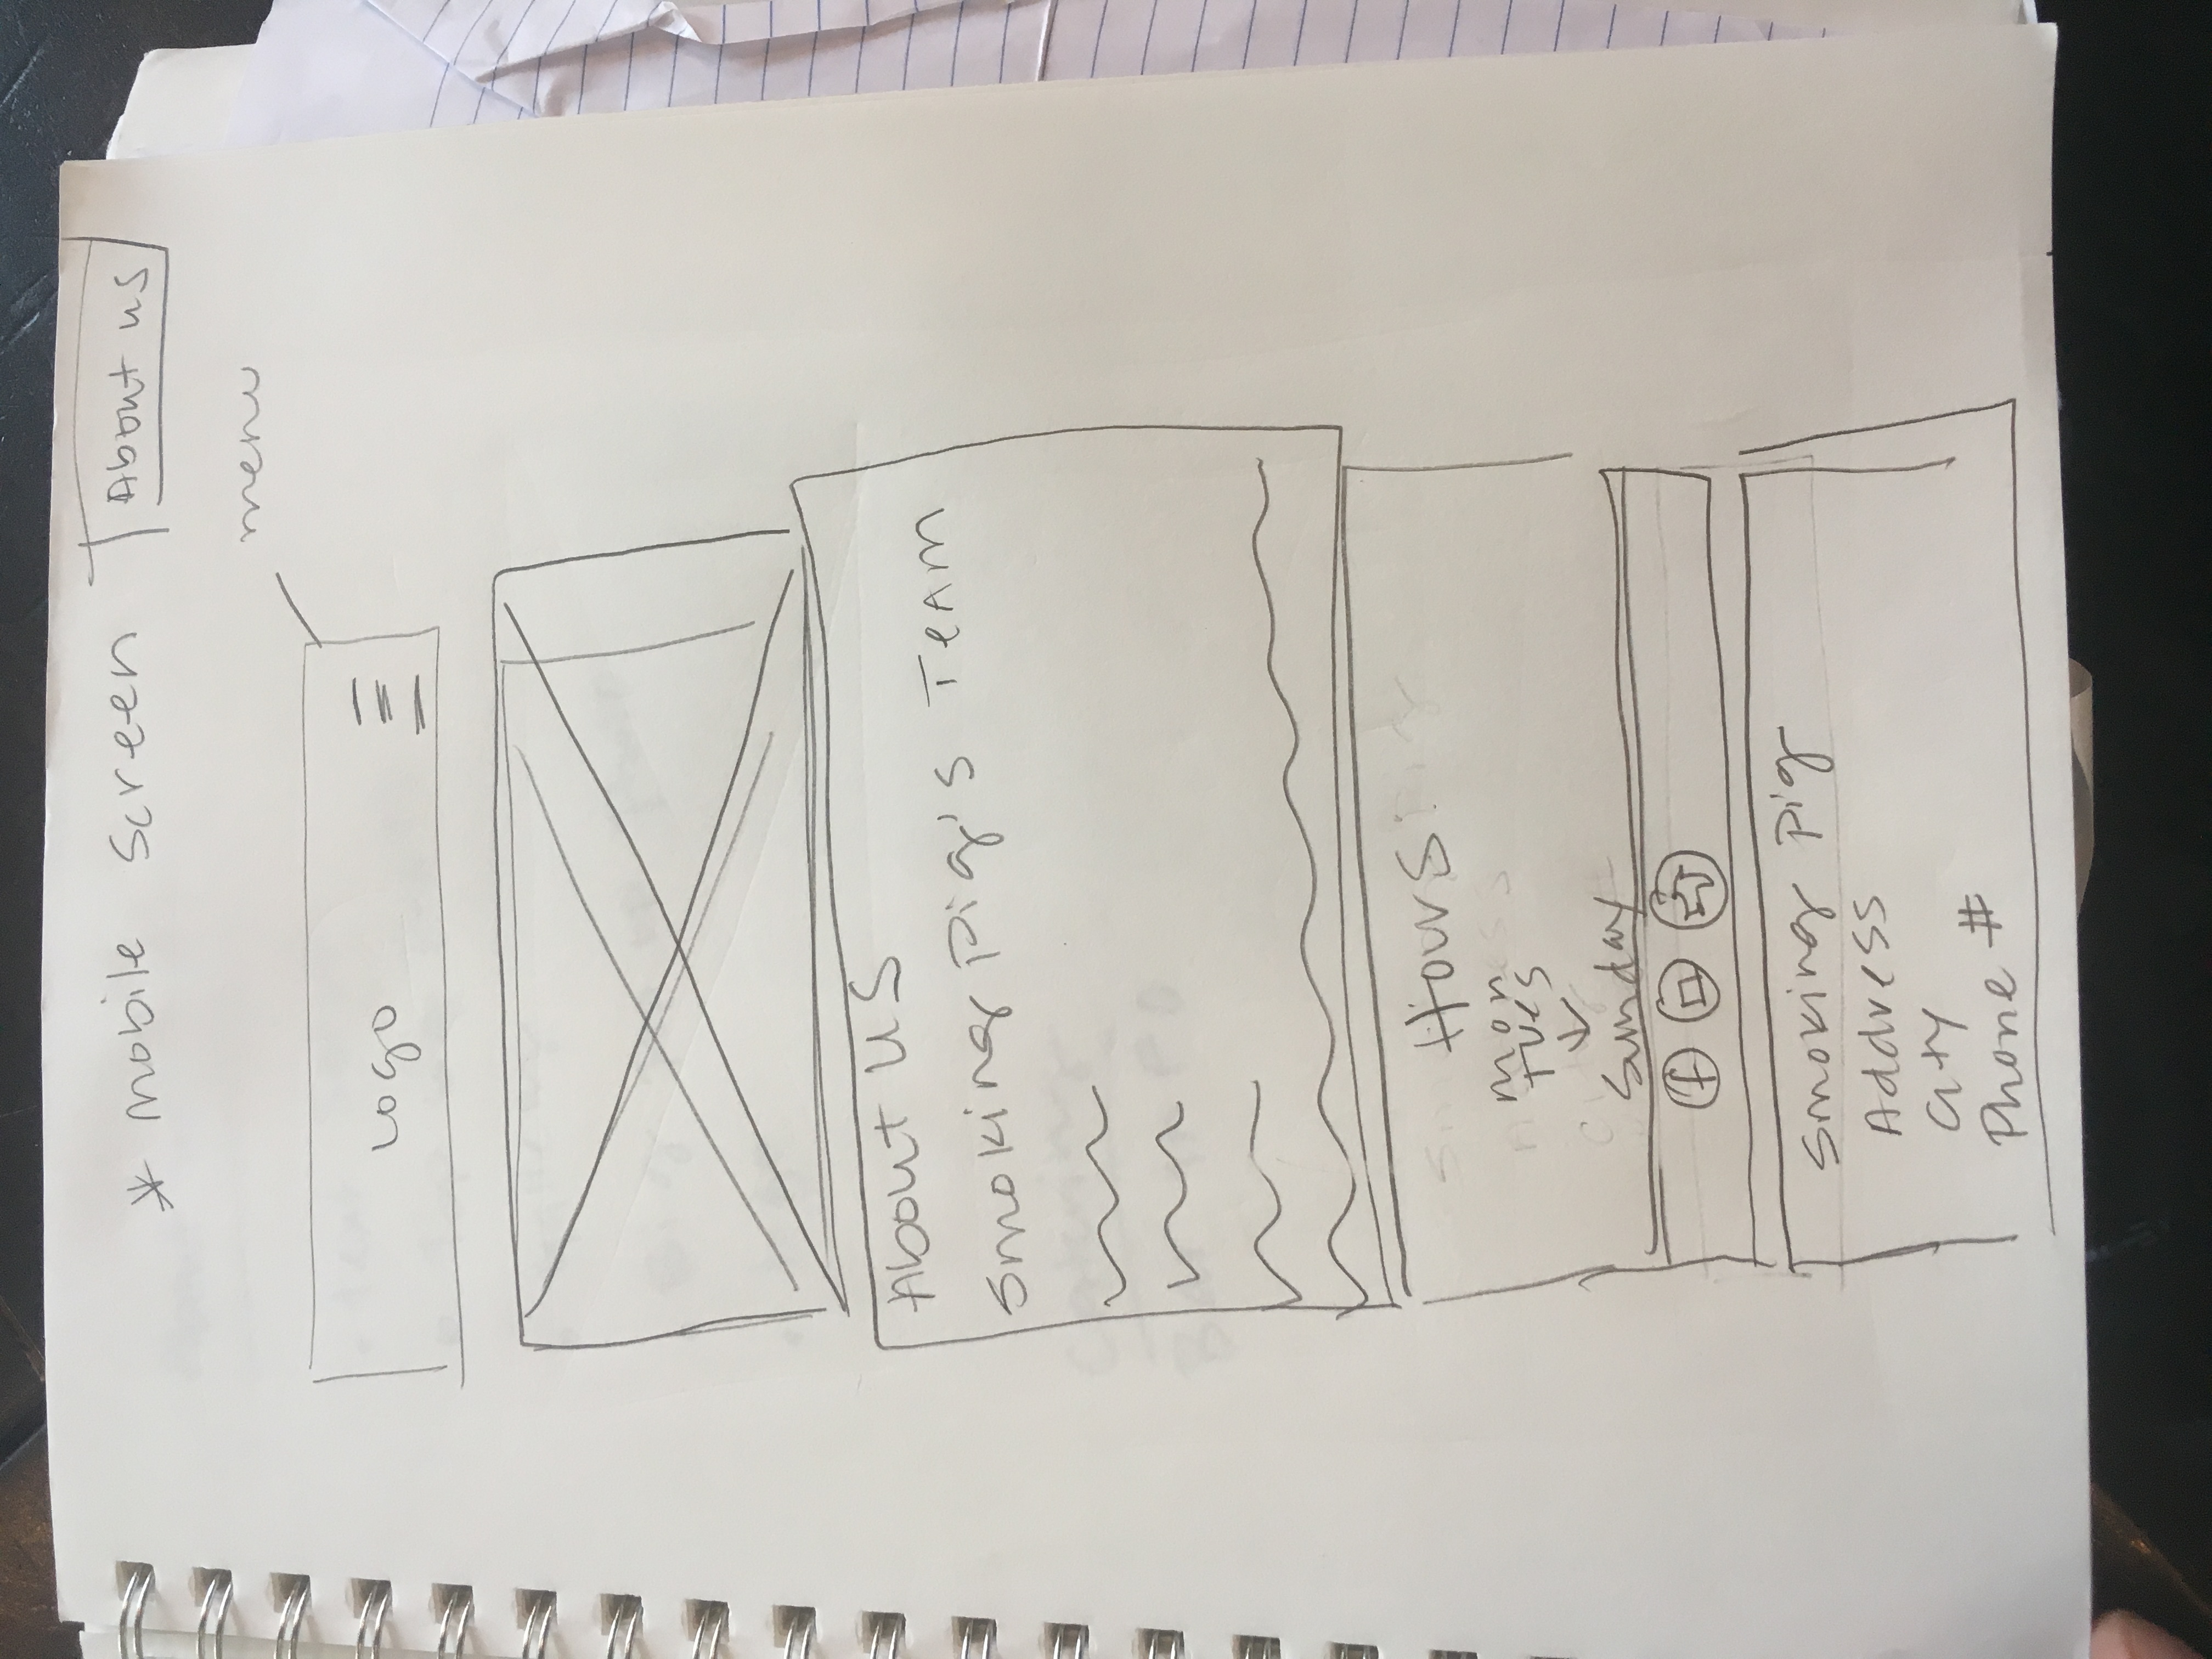 * mobile screen About us
menu
Logo
About US
Smoking Pig's TEAM
Hours
mon
Tues
Sunday
f
Smoking Pig
Address
City
Phone #